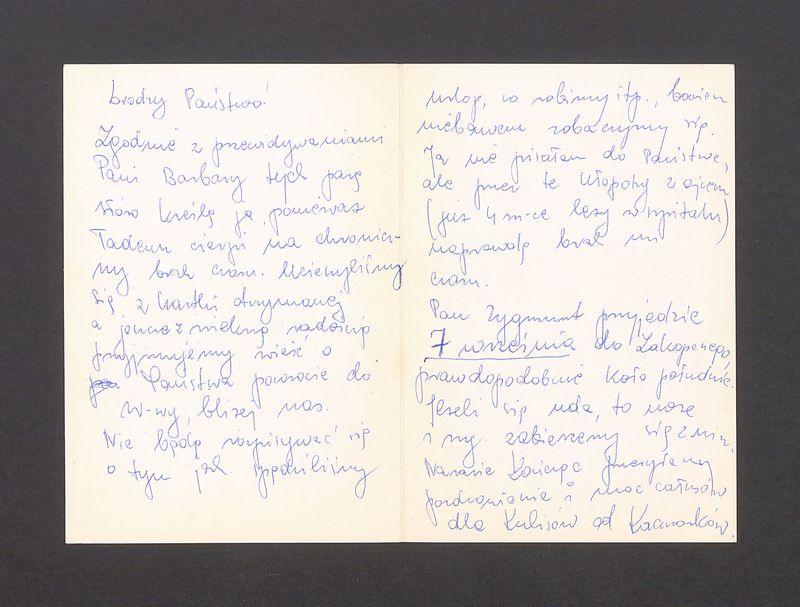 Drodzy Państwo!
Zgodnie z przewidywaniami
Pani Barbary tych parę
słów kreślę ja, ponieważ
Tadeusz cierpi na chronicz-
ny brak czasu. Ucieszyliśmy
się z kartki otrzymanej
a jeszcze z większą radością
przyjmujemy wieść o
Państwa powrocie do
W-wy, bliżej nas.
Nie będę rozpisywać się
o tym jak spędziliśmy
urlop, co robimy itp., bowiem
niebawem zobaczymy się.
Ja nie pisałam do Państwa,
ale przez te kłopoty z ojcem
(już 4 m-ce leży w szpitalu)
naprawdę brak mi
czasu.
Pan Zygmunt przyjedzie
7 września do Zakopanego,
prawdopodobnie koło południa.
Jeżeli się uda, to może
i my zabierzemy się z nim.
Na razie kończę przesyłamy
pozdrowienia i moc całusów
dla Kulisów od Kaczmarków.